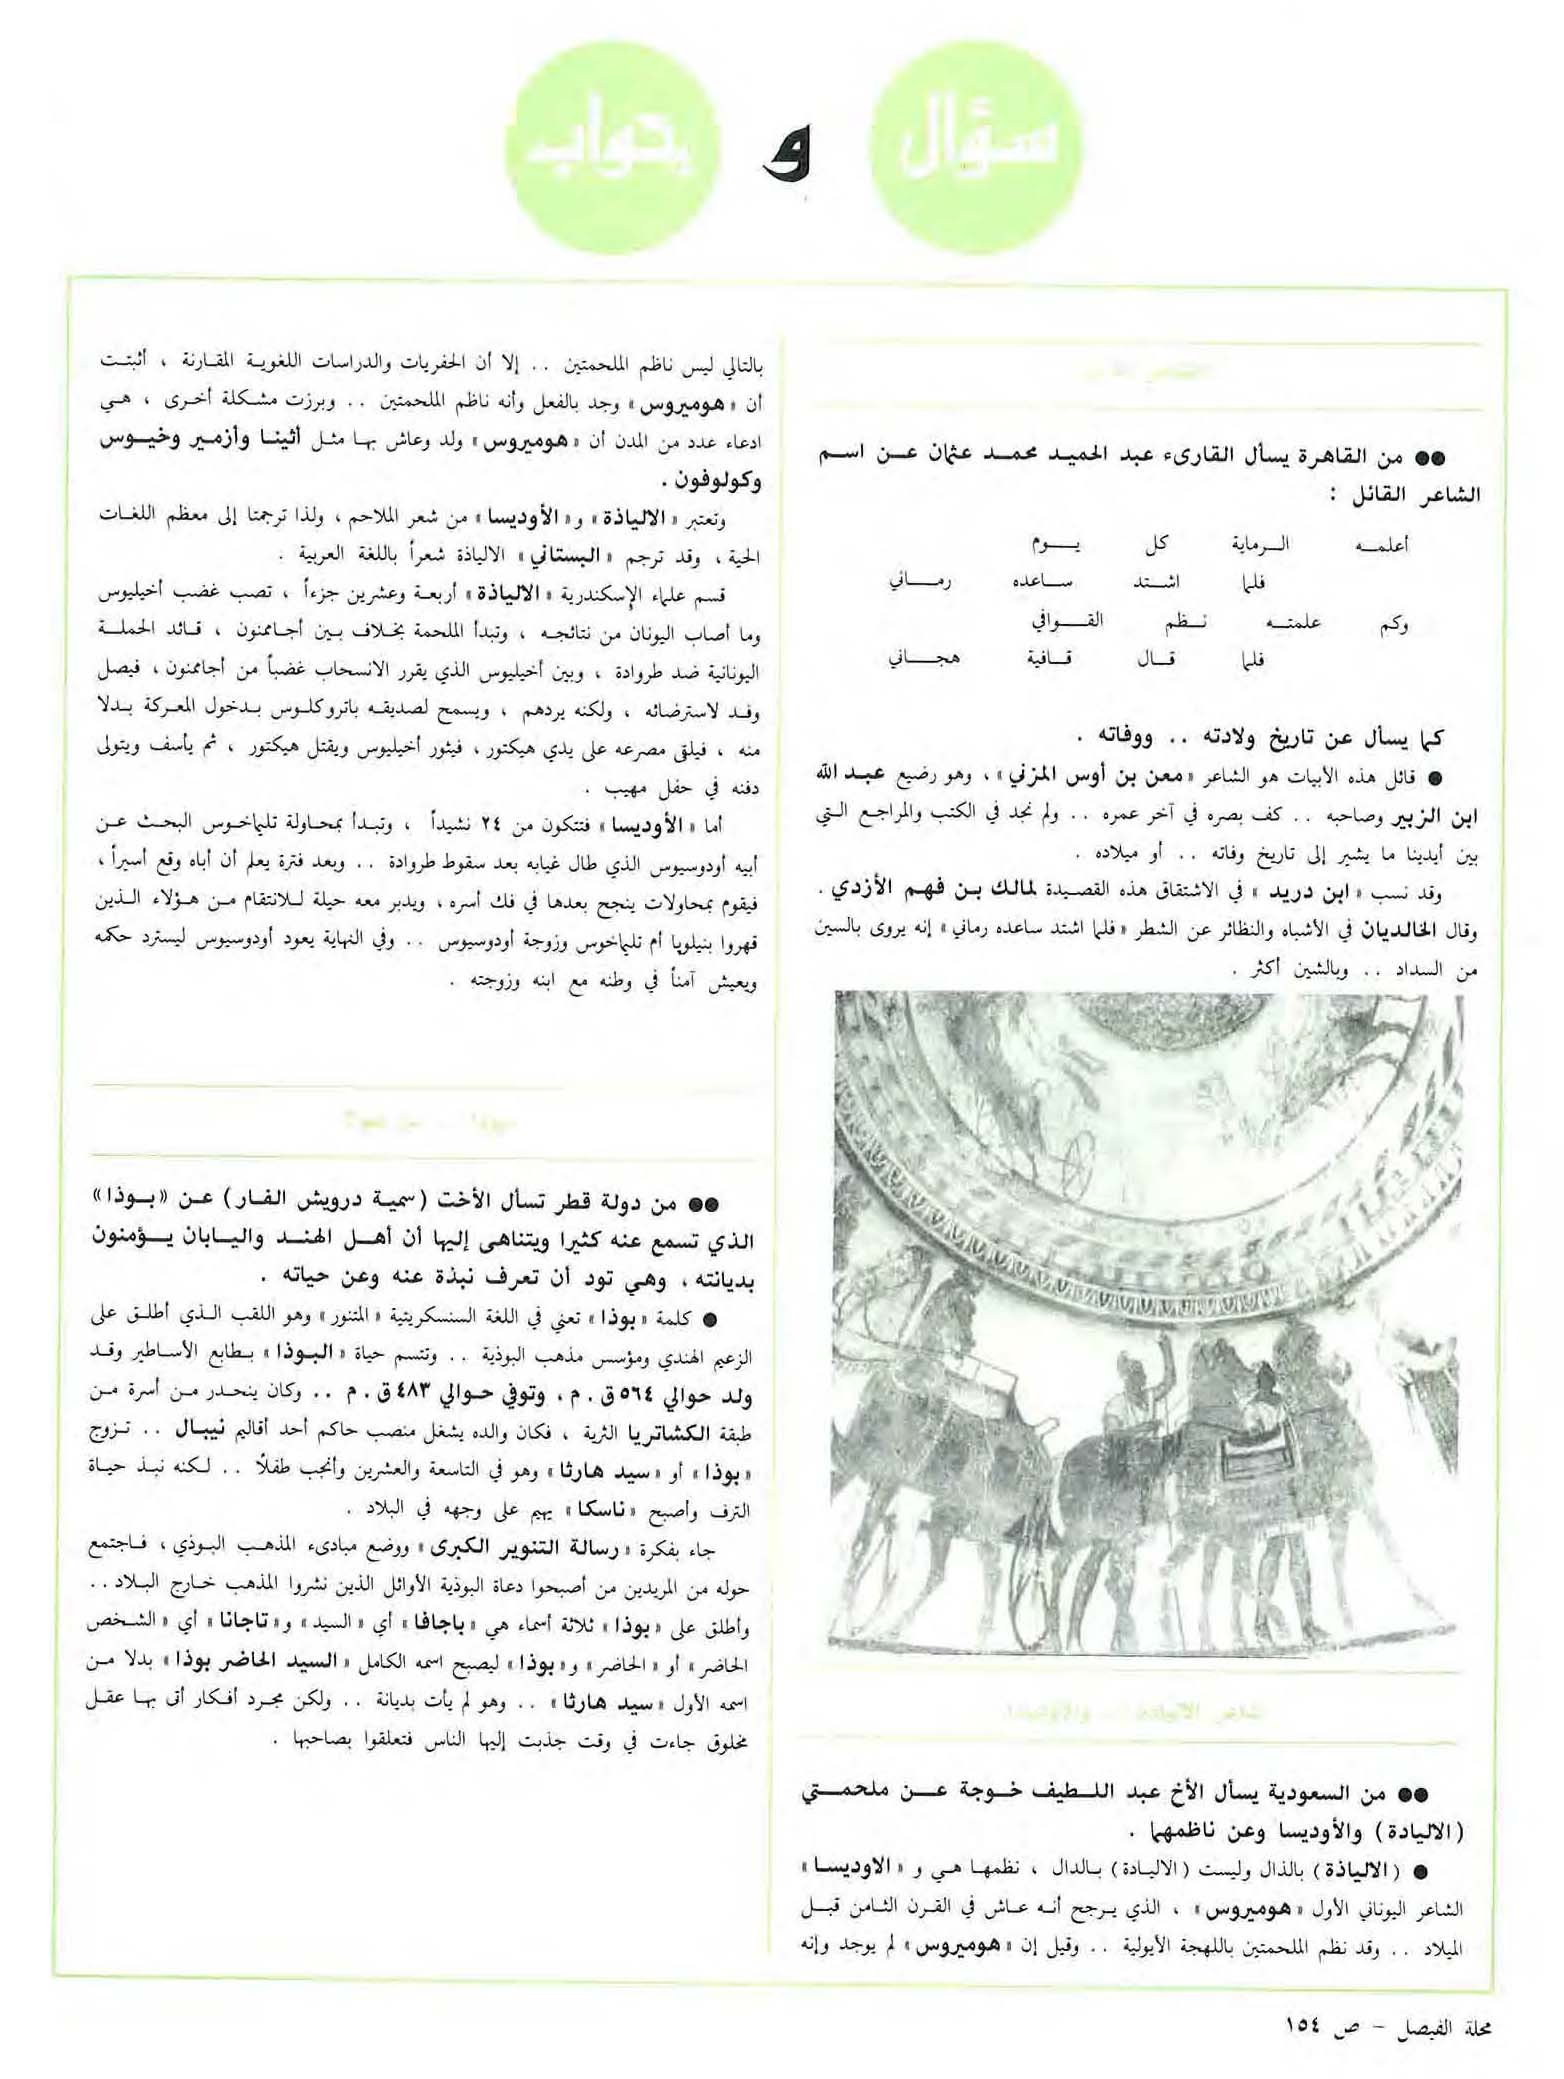 سؤال
و
جواب
●● من القاهرة يسأل القارىء عبد الحميد محمد عثمان عن اسم
الشاعر القائل :
أعلمه الرماية كل يوم
فلما اشتد ساعده رماني
وكم علمته نظم القوافي
فلما قال قافية هجاني
كما يسأل عن تاريخ ولادته .. ووفاته .
● قائل هذه الأبيات هو الشاعر «معن بن أوس المزني» ، وهو رضيع عبد الله
ابن الزبير وصاحبه .. كف بصره في آخر عمره .. ولم نجد في الكتب والمراجع التي
بين أيدينا ما يشير إلى تاريخ وفاته .. أو ميلاده .
وقد نسب «ابن دريد» في الاشتقاق هذه القصيدة لمالك بن فهم الأزدي .
وقال الخالديان في الأشباه والنظائر عن الشطر «فلما اشتد ساعده رماني» إنه يروى بالسين
من السداد .. وبالشين أكثر .
شاعر الالياذة .. والأوديسا
●● من السعودية يسأل الأخ عبد اللطيف خوجة عن ملحمتي
(الاليادة) والأوديسا وعن ناظمهما .
● (الالياذة) بالذال وليست (الاليادة) بالدال ، نظمها هي و «الاوديسا»
الشاعر اليوناني الأول «هوميروس» ، الذي يرجح أنه عاش في القرن الثامن قبل
الميلاد .. وقد نظم الملحمتين باللهجة الأيولية .. وقيل إن «هوميروس» لم يوجد وإنه
بالتالي ليس ناظم الملحمتين .. إلا أن الحفريات والدراسات اللغوية المقارنة ، أثبتت
أن «هوميروس» وجد بالفعل وأنه ناظم الملحمتين .. وبرزت مشكلة أخرى ، هي
ادعاء عدد من المدن أن «هوميروس» ولد وعاش بها مثل أثينا وأزمير وخيوس
وكولوفون .
وتعتبر «الالياذة» و«الأوديسا» من شعر الملاحم ، ولذا ترجمتا إلى معظم اللغات
الحية ، وقد ترجم «البستاني» الالياذة شعراً باللغة العربية .
قسم علماء الإسكندرية «الالياذة» أربعة وعشرين جزءاً ، تصب غضب أخيليوس
وما أصاب اليونان من نتائجه ، وتبدأ الملحمة بخلاف بين أجاممنون ، قائد الحملة
اليونانية ضد طروادة ، وبين أخيليوس الذي يقرر الانسحاب غضباً من أجاممنون ، فيصل
وفد لاسترضائه ، ولكنه يردهم ، ويسمح لصديقه باتروكلوس بدخول المعركة بدلا
منه ، فيلقى مصرعه على يدي هيكتور ، فيثور أخيليوس ويقتل هيكتور ، ثم يأسف ويتولى
دفنه في حفل مهيب .
أما «الأوديسا» فتتكون من ٢٤ نشيداً ، وتبدأ بمحاولة تليماخوس البحث عن
أبيه أودوسيوس الذي طال غيابه بعد سقوط طروادة .. وبعد فترة يعلم أن أباه وقع أسيراً ،
فيقوم بمحاولات ينجح بعدها في فك أسره ، ويدبر معه حيلة للانتقام من هؤلاء الذين
قهروا بنيلوپا أم تليماخوس وزوجة أودوسيوس .. وفي النهاية يعود أودوسيوس ليسترد حكمه
ويعيش آمناً في وطنه مع ابنه وزوجته .
●● من دولة قطر تسأل الأخت (سمية درويش الفار) عن «بوذا»
الذي تسمع عنه كثيرا ويتناهى إليها أن أهل الهند واليابان يؤمنون
بديانته ، وهي تود أن تعرف نبذة عنه وعن حياته .
● كلمة «بوذا» تعني في اللغة السنسكريتية «المتنور» وهو اللقب الذي أطلق على
الزعيم الهندي ومؤسس مذهب البوذية .. وتتسم حياة «البوذا» بطابع الأساطير وقد
ولد حوالي ٥٦٤ ق . م ، وتوفي حوالي ٤٨٣ ق . م .. وكان ينحدر من أسرة من
طبقة الكشاتريا الثرية ، فكان والده يشغل منصب حاكم أحد أقاليم نيبال .. تزوج
«بوذا» أو «سيد هارثا» وهو في التاسعة والعشرين وأنجب طفلاً .. لكنه نبذ حياة
الترف وأصبح «ناسكا» يهيم على وجهه في البلاد .
جاء بفكرة «رسالة التنوير الكبرى» ووضع مبادىء المذهب البوذي ، فاجتمع
حوله من المريدين من أصبحوا دعاة البوذية الأوائل الذين نشروا المذهب خارج البلاد ..
وأطلق على «بوذا» ثلاثة أسماء هي «باجافا» أي «السيد» و«تاجاتا» أي «الشخص
الحاضر» أو «الحاضر» و«بوذا» ليصبح اسمه الكامل «السيد الحاضر بوذا» بدلا من
اسمه الأول «سيد هارثا» .. وهو لم يأت بديانة .. ولكن مجرد أفكار أتى بها عقل
مخلوق جاءت في وقت جذبت إليها الناس فتعلقوا بصاحبها .
مجلة الفيصل - ص ١٥٤